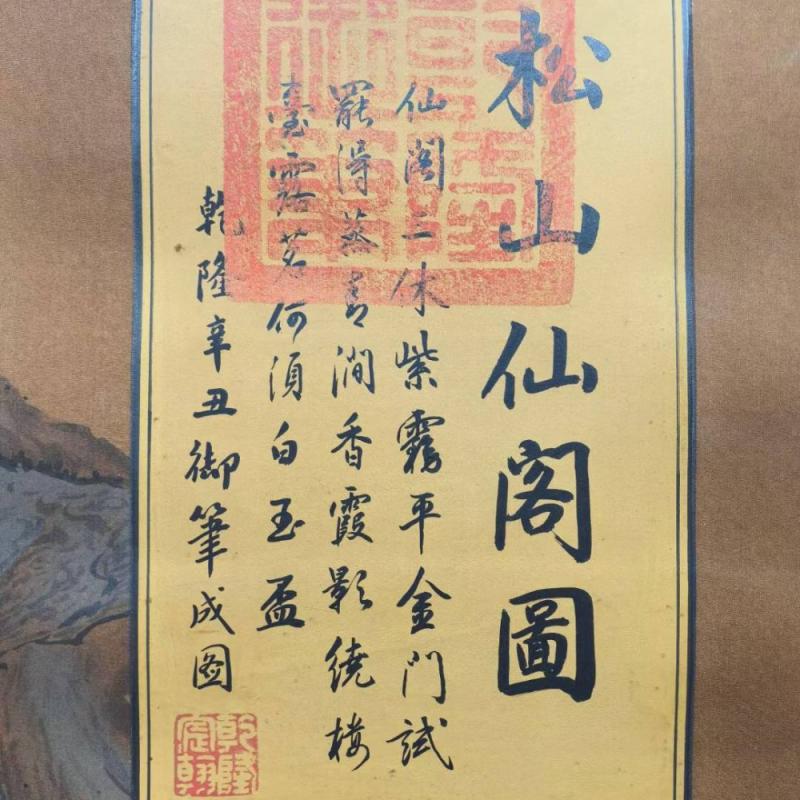 松山仙閣圖
仙閣三休紫霧平金門試
罷得蒸青澗香霞影繞樓
臺露茗何須白玉盃
乾隆辛丑御筆成图
乾隆宸翰